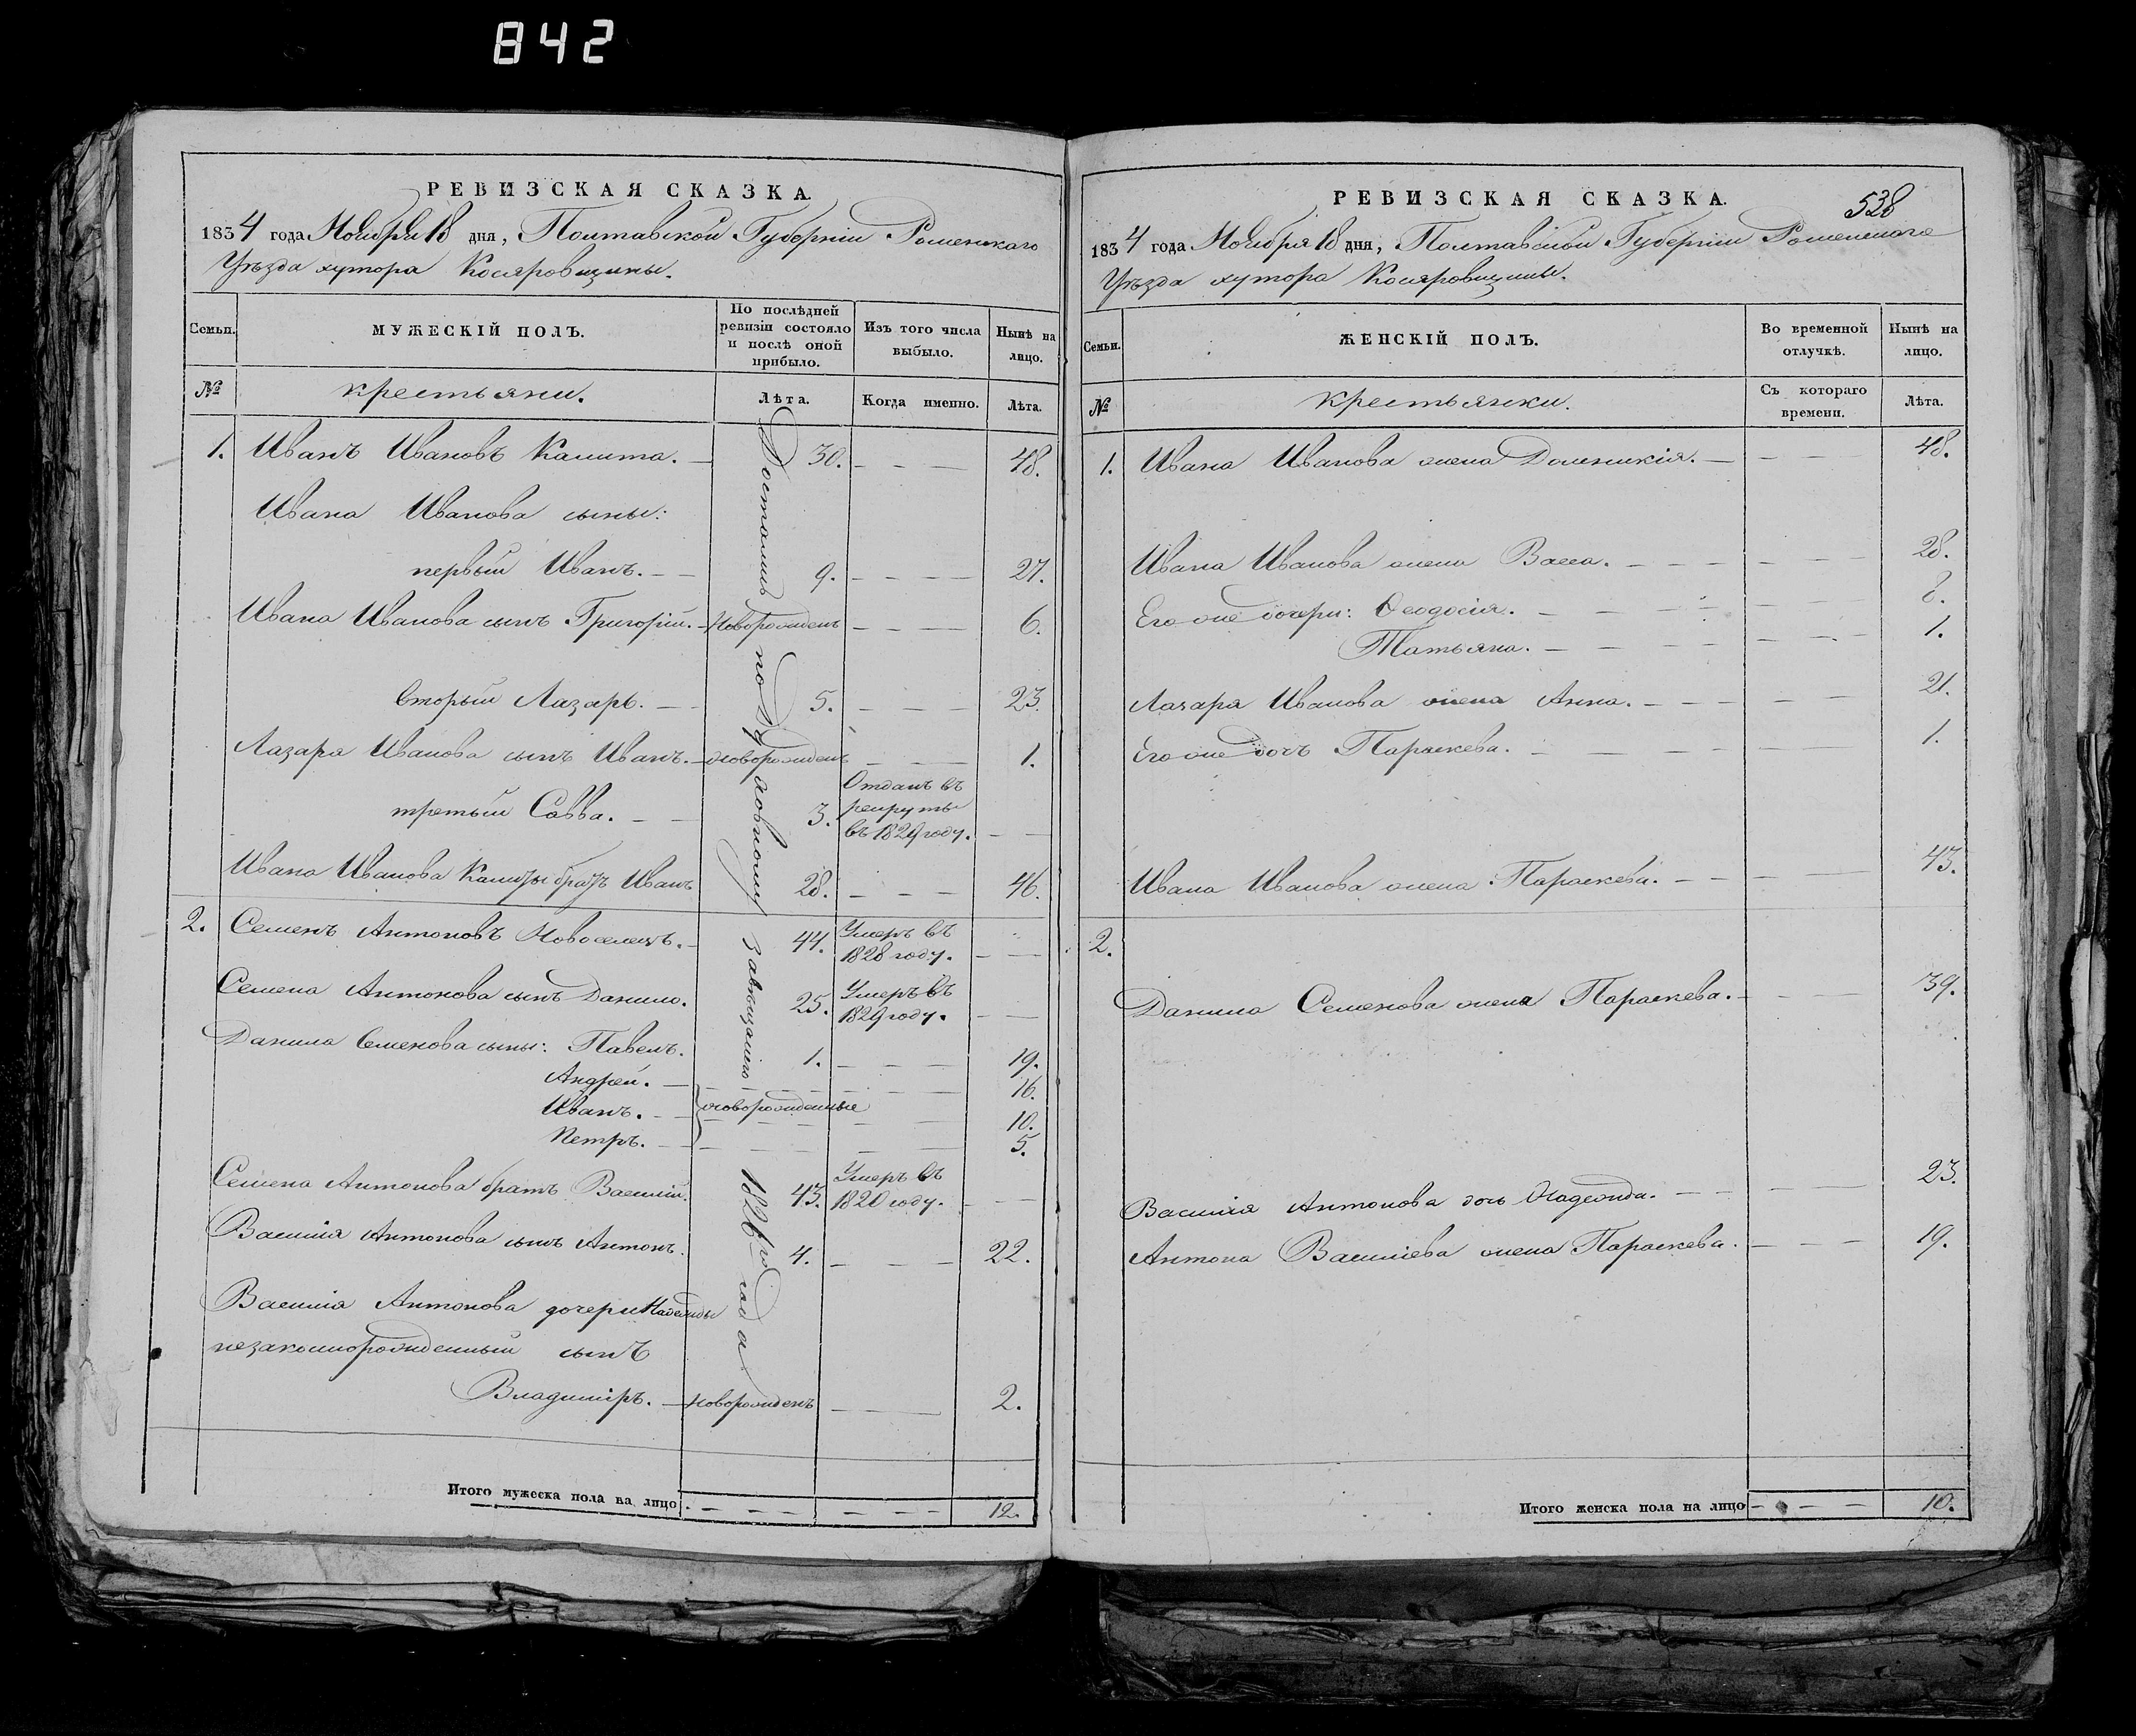 842
РЕВИЗСКАЯ СКАЗКА.
1834 года Ноября 18 дня, Полтавской Губерніи Роменскаго
Уѣзда хутора Косяровщины.
Семьи.
МУЖЕСКІЙ ПОЛЪ.
По послѣдней ревизіи состояло и послѣ оной прибыло.
Изъ того числа выбыло.
Нынѣ на лицо.
№
крестьяни.
Лѣта.
Когда именно.
Лѣта.
Достались по Духовному завѣщанію 1826го года
1. Иванъ Ивановъ Калита. — 30. — — — 48.
Ивана Иванова сыны:
первый Иванъ. — — 9. — — — — 27.
Ивана Иванова сынъ Григорій. — Новорожденъ — — — 6.
вторый Лазарь. — — 5. — — — 23.
Лазаря Иванова сынъ Иванъ. — новорожденъ — — — 1.
третый Савва. — — 3. Отданъ въ рекруты въ 1829 году. — —
Ивана Иванова Калиты братъ Иванъ 28. — — — 46.
2. Семенъ Антоновъ Новоселецъ. — 44. Умеръ въ 1828 году. — —
Семена Антонова сынъ Данило. 25. Умеръ въ 1829 году. — —
Данила Семенова сыны: Павелъ. 1. — — — 19.
Андрей. — — — — 16.
Иванъ. — — новорожденные — — 10.
Петръ. — — — — 5.
Семена Антонова братъ Василій. 43. Умеръ въ 1820 году. — —
Василія Антонова сынъ Антонъ. 4. — — — 22.
Василія Антонова дочери Надежды
незаконнорожденный сынъ
Владиміръ. — новорожденъ — — — 2.
Итого мужеска пола на лицо . — — — — — — 12.
538
РЕВИЗСКАЯ СКАЗКА.
1834 года Ноября 18 дня, Полтавской Губерніи Роменскаго
Уѣзда хутора Косяровщины.
Семьи.
ЖЕНСКІЙ ПОЛЪ.
Во временной отлучкѣ.
Нынѣ на лицо.
№
крестьянки.
Съ котораго времени.
Лѣта.
1. Ивана Иванова жена Доменикія. — — — — 48.
Ивана Иванова жена Васса. — — — — — — 28.
Его же дочери: Ѳеодосія. — — — — — — 8.
Татьяна. — — — — — — 1.
Лазаря Иванова жена Анна. — — — — — 21.
Его же дочь Параскева. — — — — — 1.
Ивана Иванова жена Параскева. — — — — 43.
2.
Данила Семенова жена Параскева. — — — 39.
Василія Антонова дочь Надежда. — — — — 23.
Антона Васильева жена Параскева. — — — 19.
Итого женска пола на лицо — — — — 10.